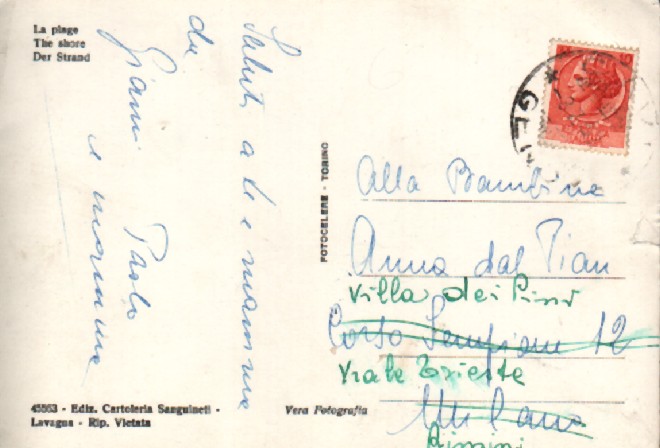 La plage
The shore
Der Strand
Saluti a te e mamma
da
Gianni Paolo
e mamma
45553 - Ediz. Cartoleria Sanguineti -
Lavagna - Rip. Vietata
Vera Fotografia
FOTOCELERE - TORINO
Alla Bambina
Anna dal Pian
Villa dei Pini
Corso Sempione 12
Viale Trieste
Milano
Rimini